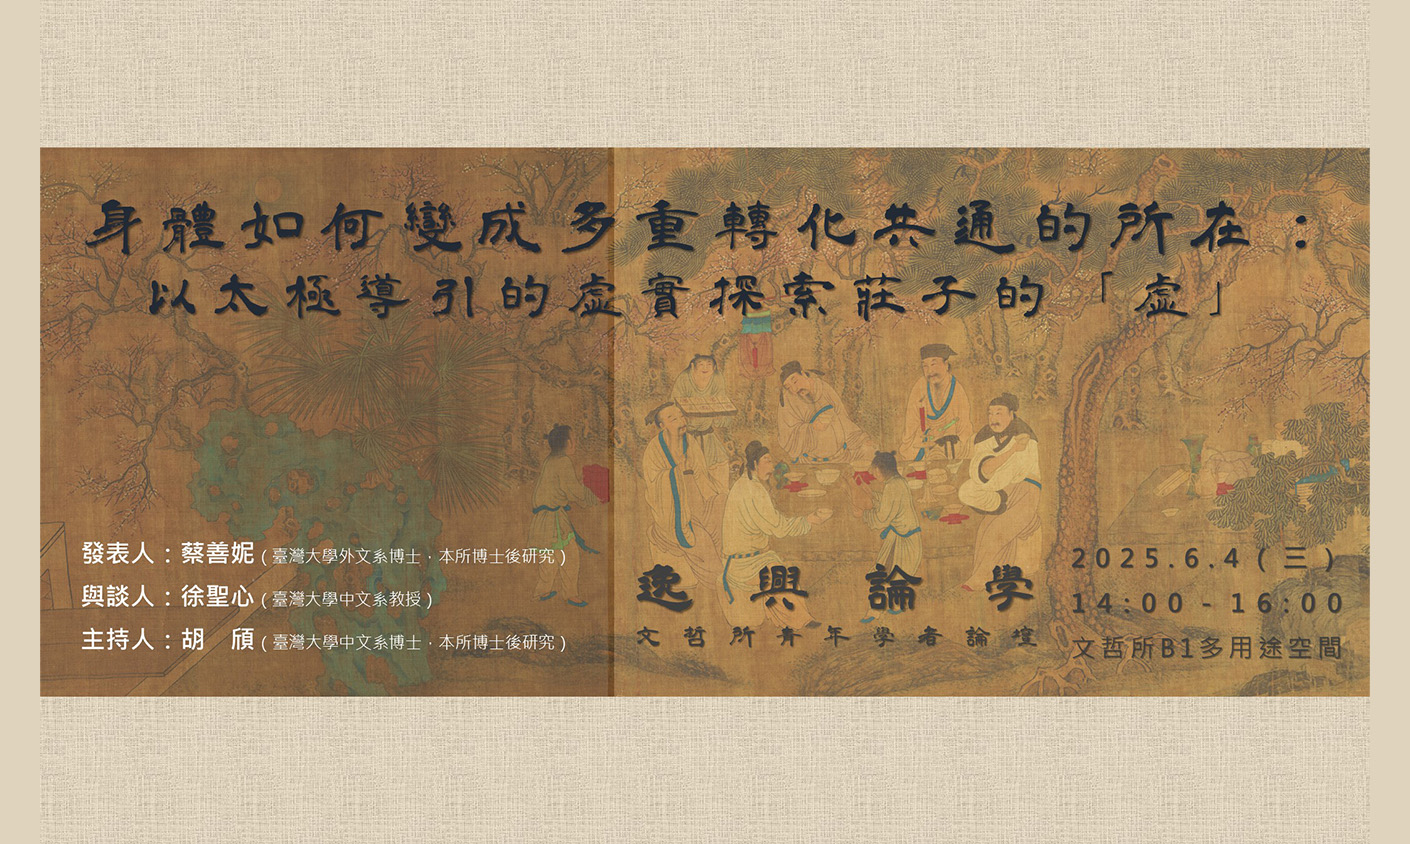 身體如何變成多重轉化共通的所在：
以太極導引的虛實探索莊子的「虛」
發表人：蔡善妮 ( 臺灣大學外文系博士．本所博士後研究 )
與談人：徐聖心 ( 臺灣大學中文系教授 )
主持人：胡　頎 ( 臺灣大學中文系博士．本所博士後研究 )
逸興論學
文哲所青年學者論壇
2025.6.4(三)
14:00 - 16:00
文哲所B1多用途空間